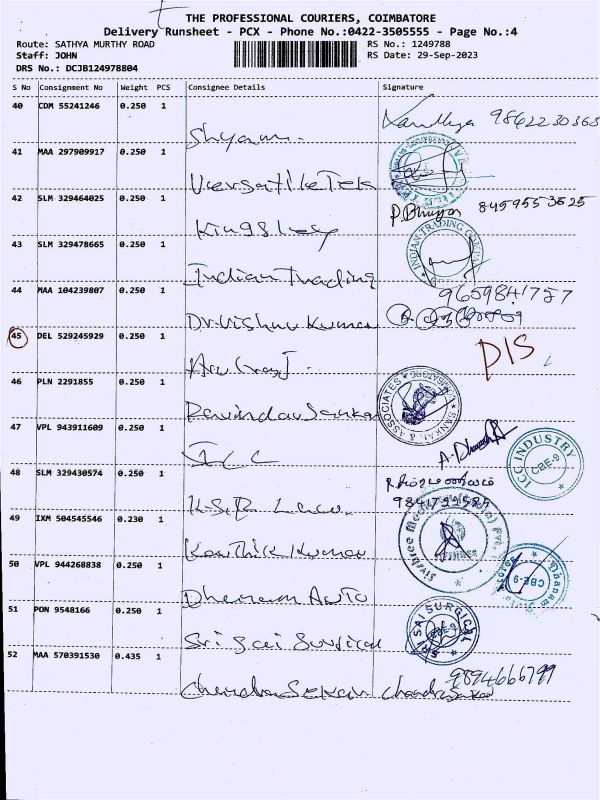 THE PROFESSIONAL COURIERS, COIMBATORE
Delivery Runsheet - PCX - Phone No.:0422-3505555 - Page No.:4
Route: SATHYA MURTHY ROAD RS No.: 1249788
Staff: JOHN RS Date: 29-Sep-2023
DRS No.: DCJB124978804
S No Consignment No Weight PCS Consignee Details Signature
40 CDM 55241246 0.250 1
Shyam. 9862230365
41 MAA 297909917 0.250 1
Versatile Tek
42 SLM 329464025 0.250 1
Kingsley 8459553625
43 SLM 329478665 0.250 1
Indian Trading INDIAN TRADING
44 MAA 104239807 0.250 1 9659841757
Dr Vishnu Kumar
45 DEL 529245929 0.250 1 DIS
46 PLN 2291855 0.250 1
Ravindar Sankar & ASSOCIATES
47 VPL 943911609 0.250 1
ICC ICC INDUSTRY CBE-9
48 SLM 329430574 0.250 1
K.S.R
49 IXM 504545546 0.230 1
Karthik Kumar
50 VPL 944268838 0.250 1
Dhanam Auto CBE-9
51 PON 9548166 0.250 1
Sri Sai Surgical SRI SAI SURGICAL CBE-9
52 MAA 570391530 0.435 1 9894666799
Chandra Sekar